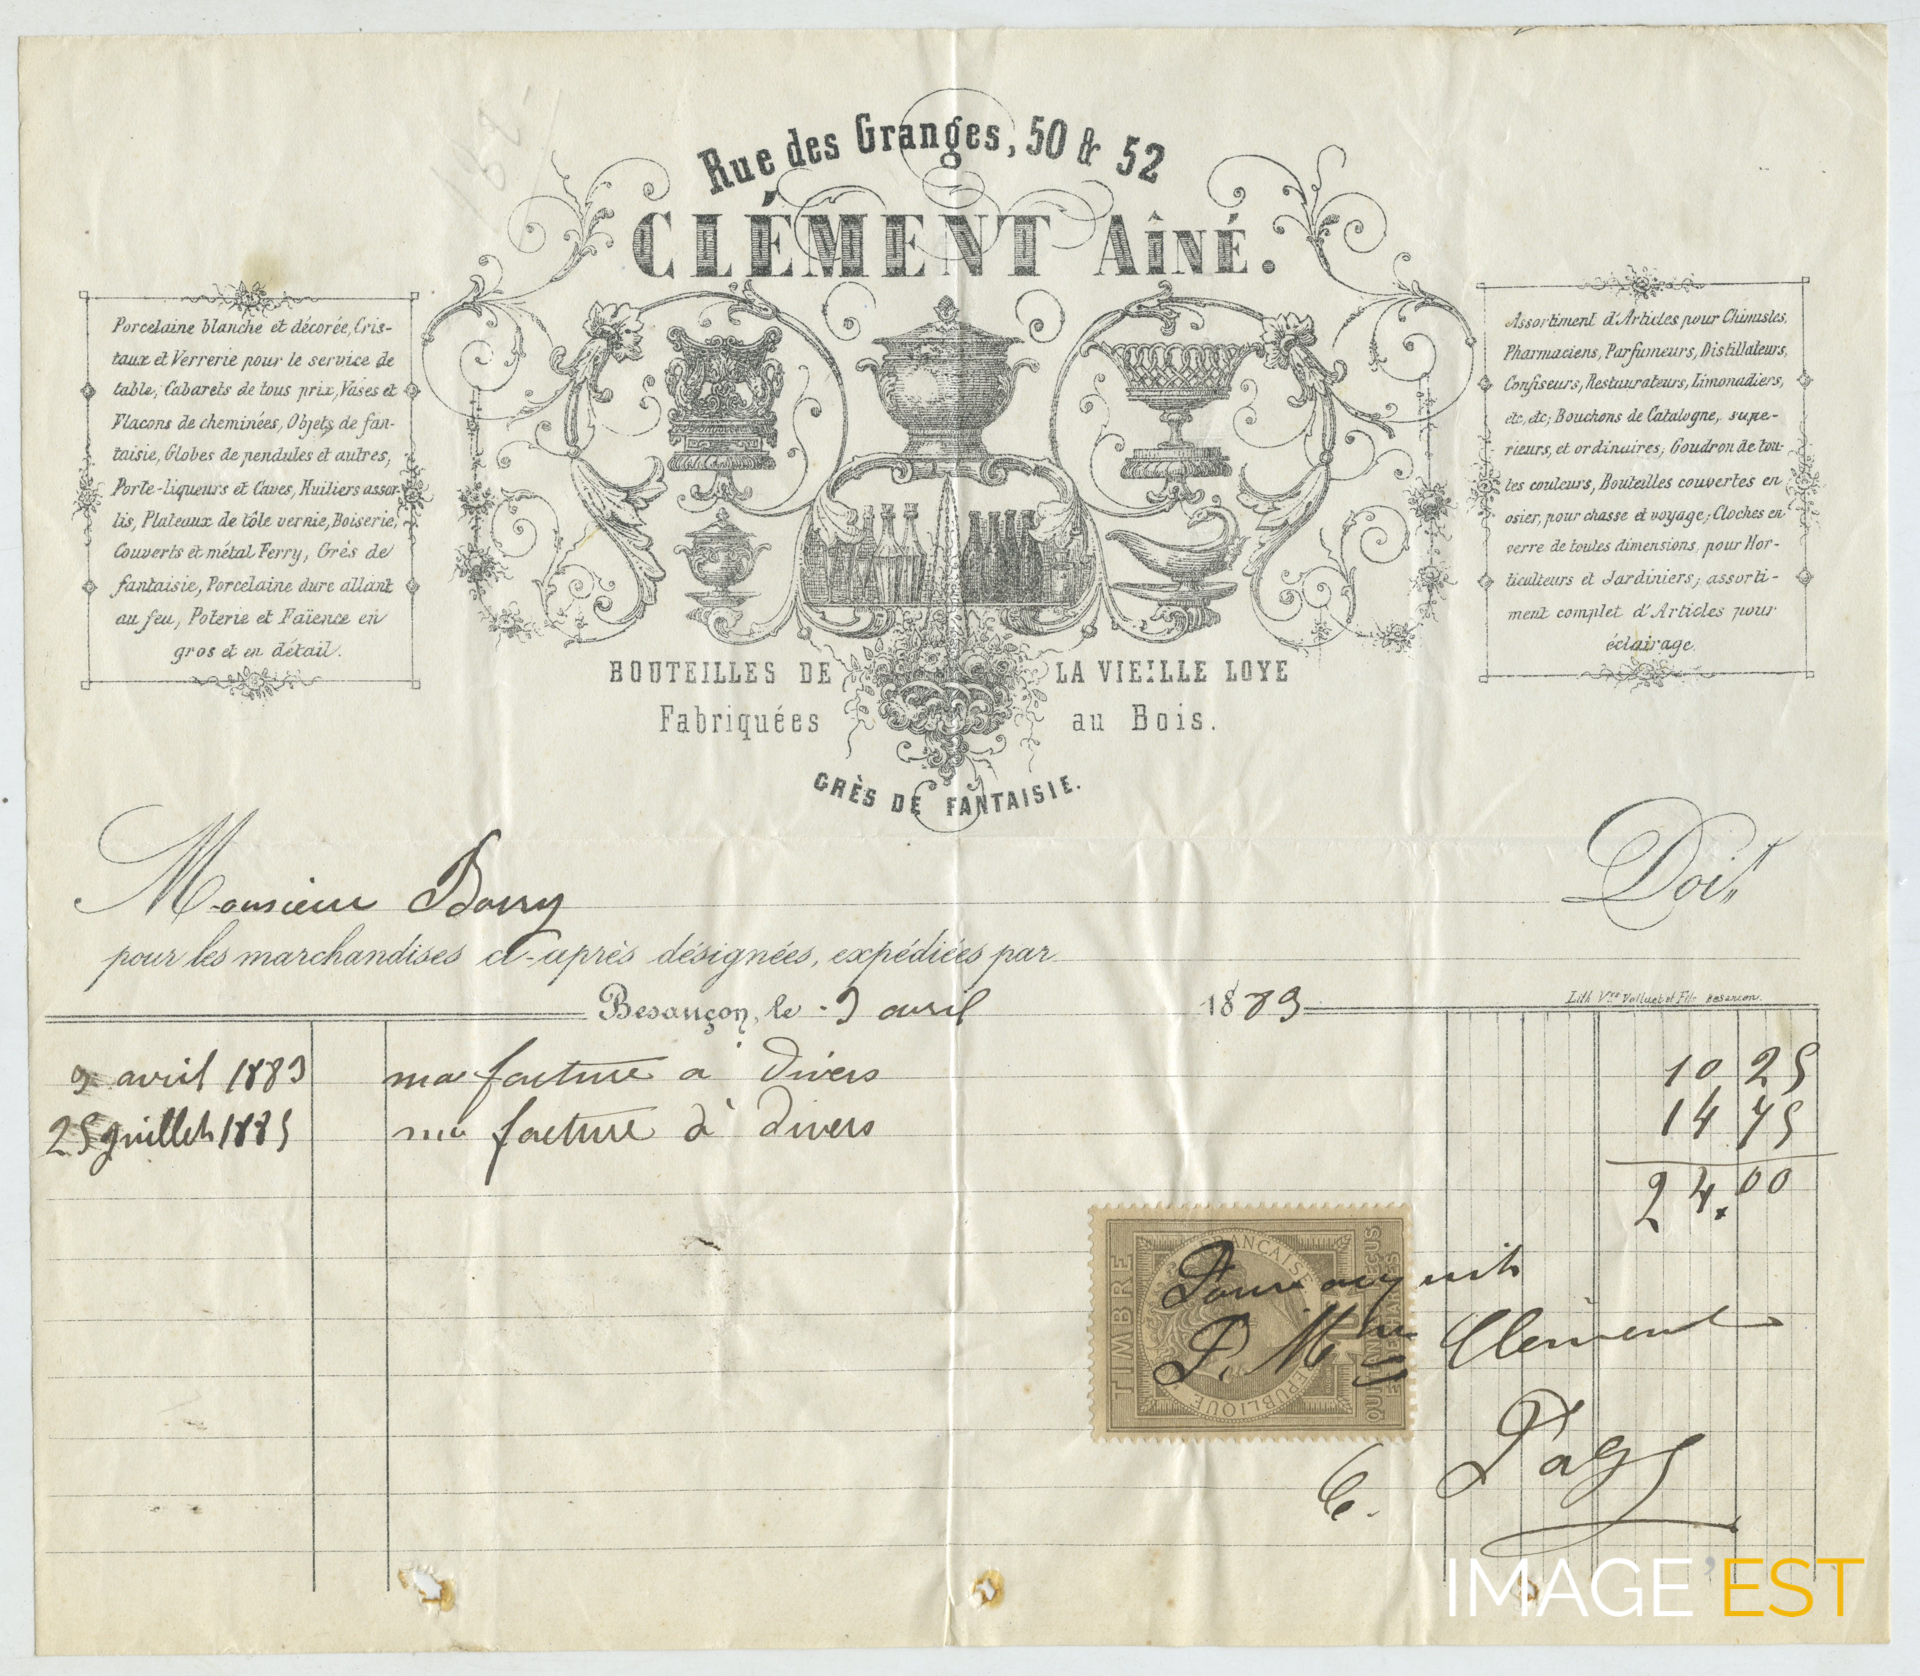 Rue des Granges, 50 & 52
CLÉMENT AÎNÉ.
Porcelaine blanche et décorée, Cris-
taux et Verrerie pour le service de
table, Cabarets de tous prix, Vases et
Flacons de cheminées, Objets de fan-
taisie, Globes de pendules et autres,
Porte-liqueurs et Caves, Huiliers assor-
tis, Plateaux de tôle vernie, Boiserie,
Couverts et métal Ferry, Grès de
fantaisie, Porcelaine dure allant
au feu, Poterie et Faïence en
gros et en détail.
Assortiment d'Articles pour Chimistes,
Pharmaciens, Parfumeurs, Distillateurs,
Confiseurs, Restaurateurs, Limonadiers,
etc, etc; Bouchons de Catalogne, supe-
rieurs, et ordinaires; Goudron de tou-
tes couleurs, Bouteilles couvertes en
osier, pour chasse et voyage; Cloches en
verre de toutes dimensions, pour Hor-
ticulteurs et Jardiniers; assorti-
ment complet d'Articles pour
éclairage.
BOUTEILLES DE LA VIEILLE LOYE
Fabriquées au Bois.
GRÈS DE FANTAISIE.
Monsieur Doit
pour les marchandises ci-après désignées, expédiées par
Besançon, le 9 avril 1889
Lith. Vve Valluet et Fils Besançon.
9 avril 1889 ma facture à divers 10 25
25 juillet 188 ma facture à divers 14 75
24.00
TIMBRE
FRANÇAISE
RÉPUBLIQUE
QUITTANCES REÇUS
ET DÉCHARGES
Pour acquit
P. Mme Clément
C.
IMAGE'EST